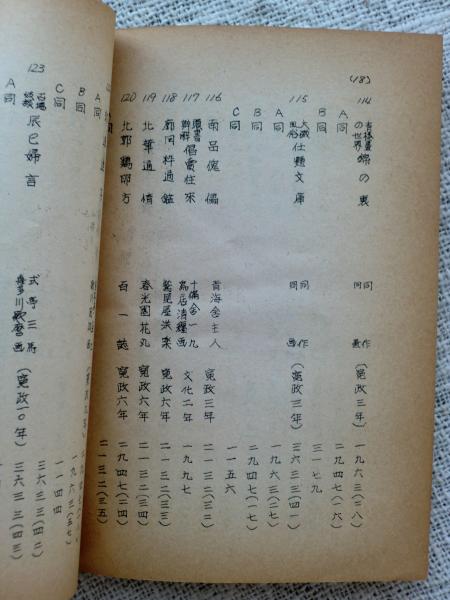 (18)
114 青楼昼の世界 錦の裏 同作 同画 (寛政三年) 一九六三(二八)
A 同 二九四七(一六)
B 同 三一七九
115 仕懸文庫 同作 同画 (寛政三年) 三六三三(四一)
A 同 一九六三(二七)
B 同 二九四七(一七)
C 同 一一五六
116 南呂傀儡 青海舎主人 寛政三年 二一三一(三二)
117 倡売往来 十偏舎一九 鳥居清経画 文化二年 一九九七
118 廓同梓通鑑 鶯尾屋洪楽 寛政六年 二一三二(三三)
119 北華通情 春光園花丸 寛政六年 二一三二(三四)
120 北郭鶏卵方 百一誌 寛政六年 二九四七(二四)
二一三二(三五)
A 同
B 同
C 同 一一四四
123 石場妓談 辰巳婦言 式亭三馬 喜多川歌麿画 (寛政一〇年) 三六三三(四二)
A 同